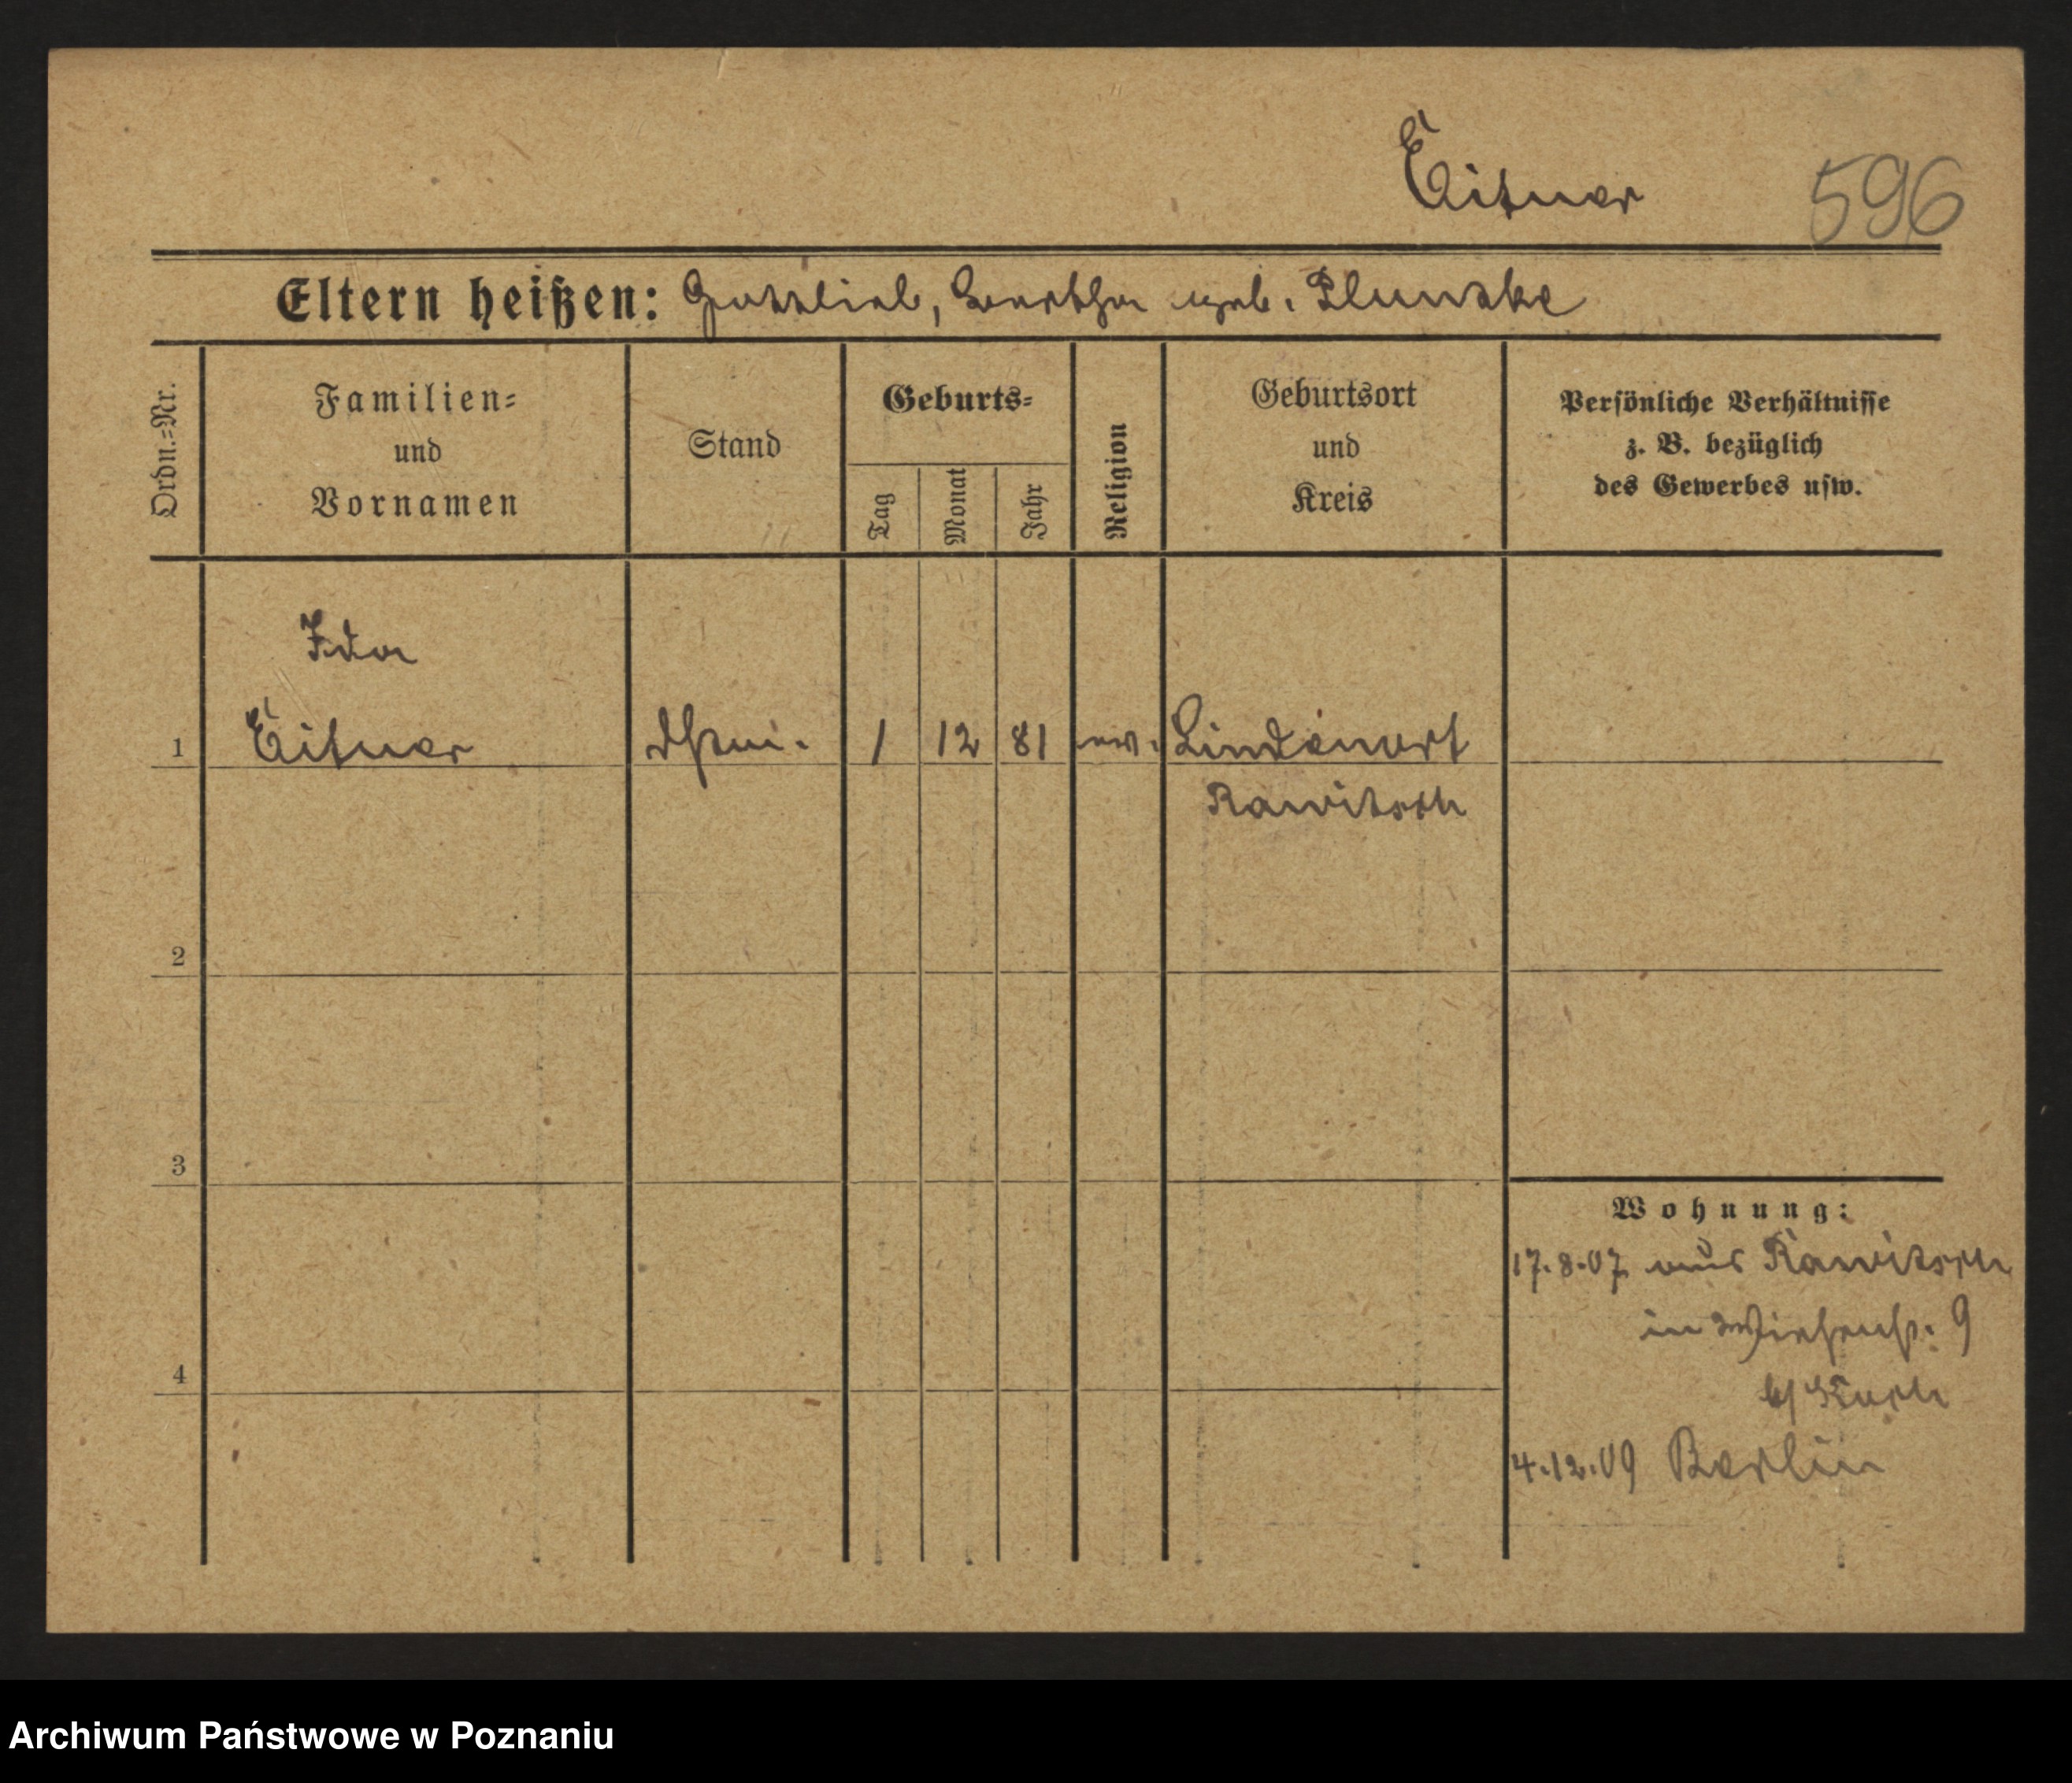 Eitner 596
Eltern heißen: Gottlieb, Bertha geb. Plunzke
Ordn.=Nr.
Familien=
und
Vornamen
Stand
Geburts=
Tag
Monat
Jahr
Religion
Geburtsort
und
Kreis
Persönliche Verhältnisse
z. B. bezüglich
des Gewerbes usw.
Ida
1 Eitner 1 12 81 ev. Lindenort
Rawitsch
2
3
4
Wohnung:
17.8.07 aus Rawitsch
in Wiesenstr. 9
b/ Koch
4.12.09 Berlin
Archiwum Państwowe w Poznaniu